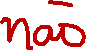 não